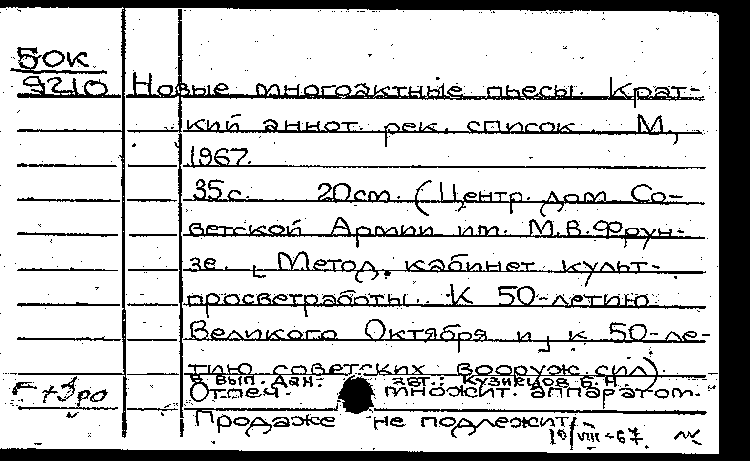 50к
9210 Новые многоактные пьесы. Крат-
кий аннот. рек. список. М.,
1967.
35с. 20см. (Центр. дом Со-
ветской Армии им. М.В.Фрун-
зе. Метод. кабинет культ-
просветработы. К 50-летию
Великого Октября и к 50-ле-
тию советских вооруж. сил).
В вып. дан. авт.: Кузнецов Б.Н.
Отпеч. множит. аппаратом.
Продаже не подлежит
19/VIII-67.